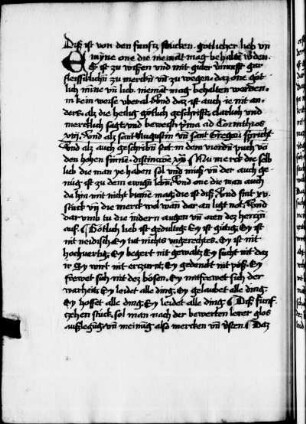 Diß ist von den funfzehen stucken gotlicher lieb vn
myne one die niemät mag behaltē wden
Es ist zu wissen vnd mit guter vnd
zu merckn vn zu wegen daz one got
lich mīne vn lieb niemāt mag behalten worden
in kein weise vberal Vnd daz ist auch ie nit an
ders als die heilig gotlich geschrifft clarlich vnd
mercklich sagt vnd bewert prima ad Corinthios
vnd als sant Augustin vn sant Gregori spricht
Vnd als auch geschribn stat in dem vierdn puch von
den hohen sinnē distinccōe Nu merck die selb
lieb die man ye haben sol vnd muß vn der auch ge
nug ist zu dem ewign lebn Vnd one die man auch
da hin nit kumē mag die ist diß Vnd sint xv
stuck vn die merck wol wan dar an ligt not Vnd
dar vmb tu die indern augen vn oren des hertzen
auf Gotlich lieb ist gedultig Er ist gutig Er ist
nit neidisch Er tut nichts vngerechts Er ist nit
hochuertig Er begert nit gewalts Er sucht nit daz
ir Er wirt nit erzürnt Er gedenckt nit poß Er
frewet sich nit des bösen Er mitfrewet sich der
warheit Er leidet alle ding Er gelaubet alle ding
Er hoffet alle ding Er leidet alle ding Diß funf
zehen stuck sol man nach der bewerten lerer glos
außlegūg vn meinūg also mercken vn vsten Daz